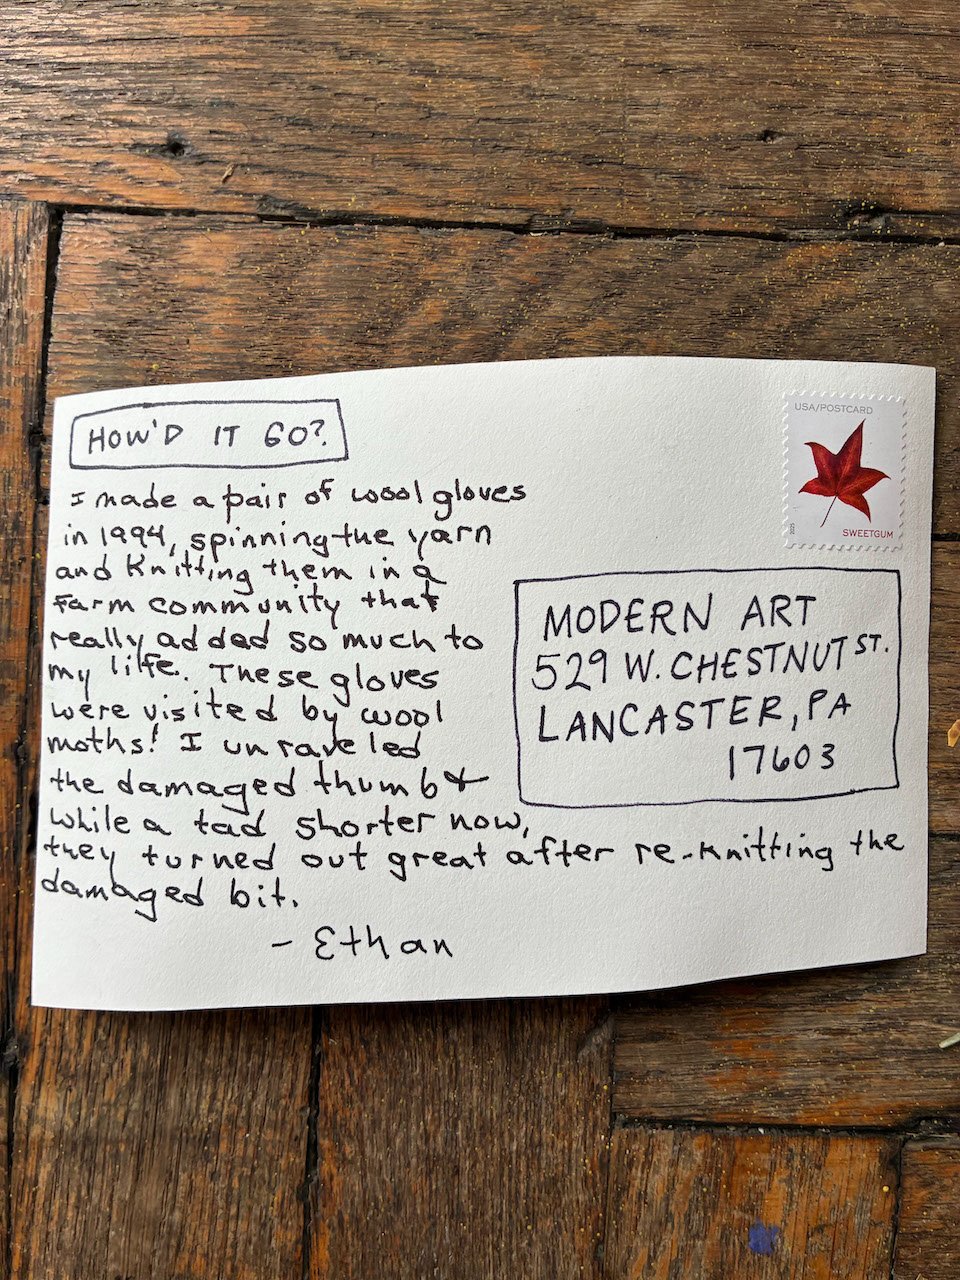 HOW'D IT GO?
I made a pair of wool gloves
in 1994, spinning the yarn
and knitting them in a
farm community that
really added so much to
my life. These gloves
were visited by wool
moths! I unraveled
the damaged thumb &
while a tad shorter now,
they turned out great after re-knitting the
damaged bit.
- Ethan
USA/POSTCARD
2025
SWEETGUM
MODERN ART
529 W. CHESTNUT ST.
LANCASTER, PA
17603